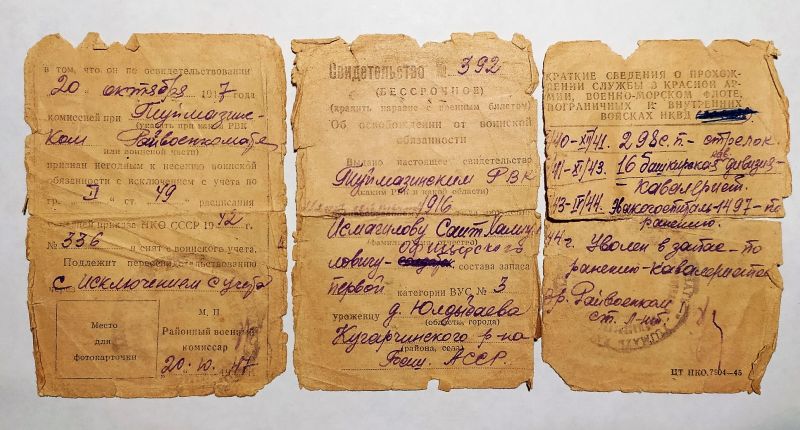 в том, что он по освидетельствовании
20 октября 1947 года
комиссией при Туймазин-
(указать при каком РВК
ском Райвоенкомате
или воинской части)
признан негодным к несению воинской
обязанности с исключением с учета по
гр. II ст 49 расписания
приказа НКО СССР 1942 г.
№ 336 и снят с воинского учета.
Подлежит переосвидетельствованию
с исключением с учета
Место
для
фотокарточки
М. П
Районный военный
комиссар
"20" 10 1947
Свидетельство № 392
(БЕССРОЧНОЕ)
(хранить наравне с военным билетом)
Об освобождении от воинской
обязанности
Выдано настоящее свидетельство
Туймазинским РВК
1916
Исмагилову Саит Халиул-
(фамилия, имя, отчество)
ловичу офицерского состава запаса
первой категории ВУС № 3
уроженцу д. Юлдыбаева
(область, города)
Кугарчинского р-на
(района, села)
Баш. АССР.
КРАТКИЕ СВЕДЕНИЯ О ПРОХОЖ-
ДЕНИИ СЛУЖБЫ В КРАСНОЙ АР-
МИИ, ВОЕННО-МОРСКОМ ФЛОТЕ,
ПОГРАНИЧНЫХ И ВНУТРЕННИХ
ВОЙСКАХ НКВД
/40-XII/41. 298 с.п.- стрелок
41-XI/43. 16 башкирская дивизия-
Кавалерист.
43-II/44. Эвакогоспиталь-1497-по
ранению.
44 г. Уволен в запас-по
ранению-кавалерист
Райвоенком
ст. л-нт.
ЦТ НКО.7904—45